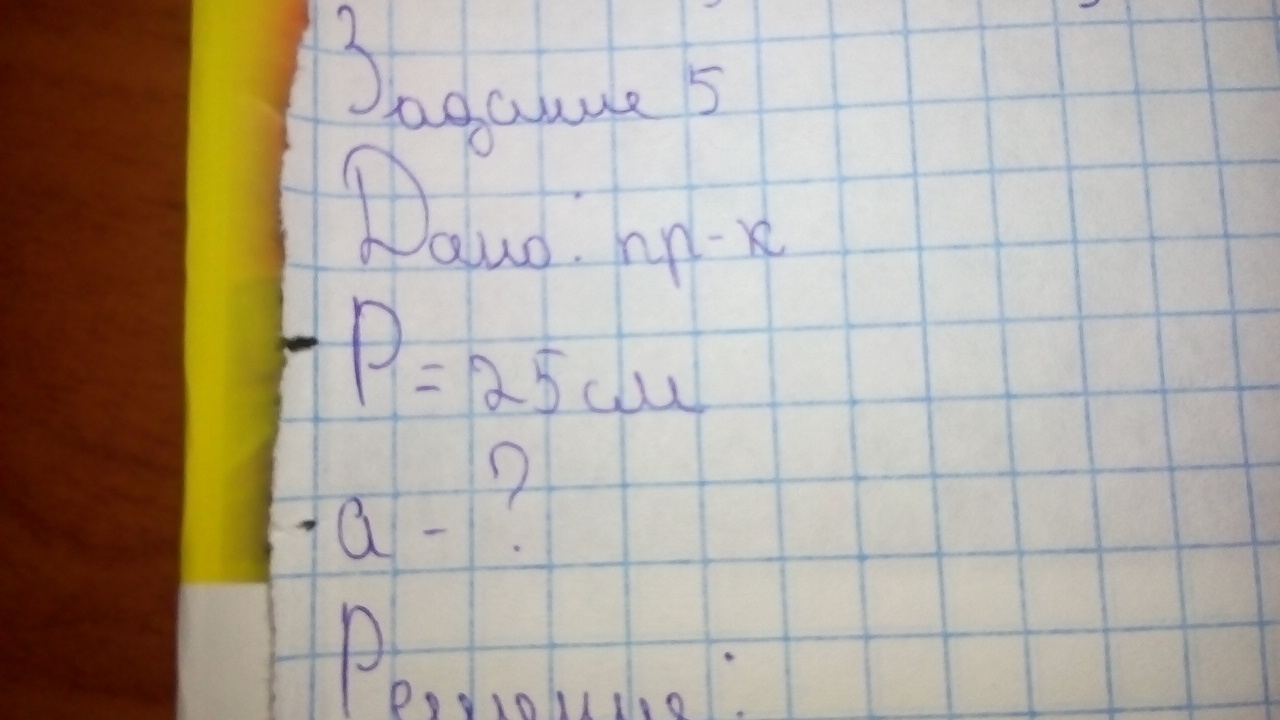 Задание 5
Дано: пр-к
P = 25 см
a - ?
Решение: